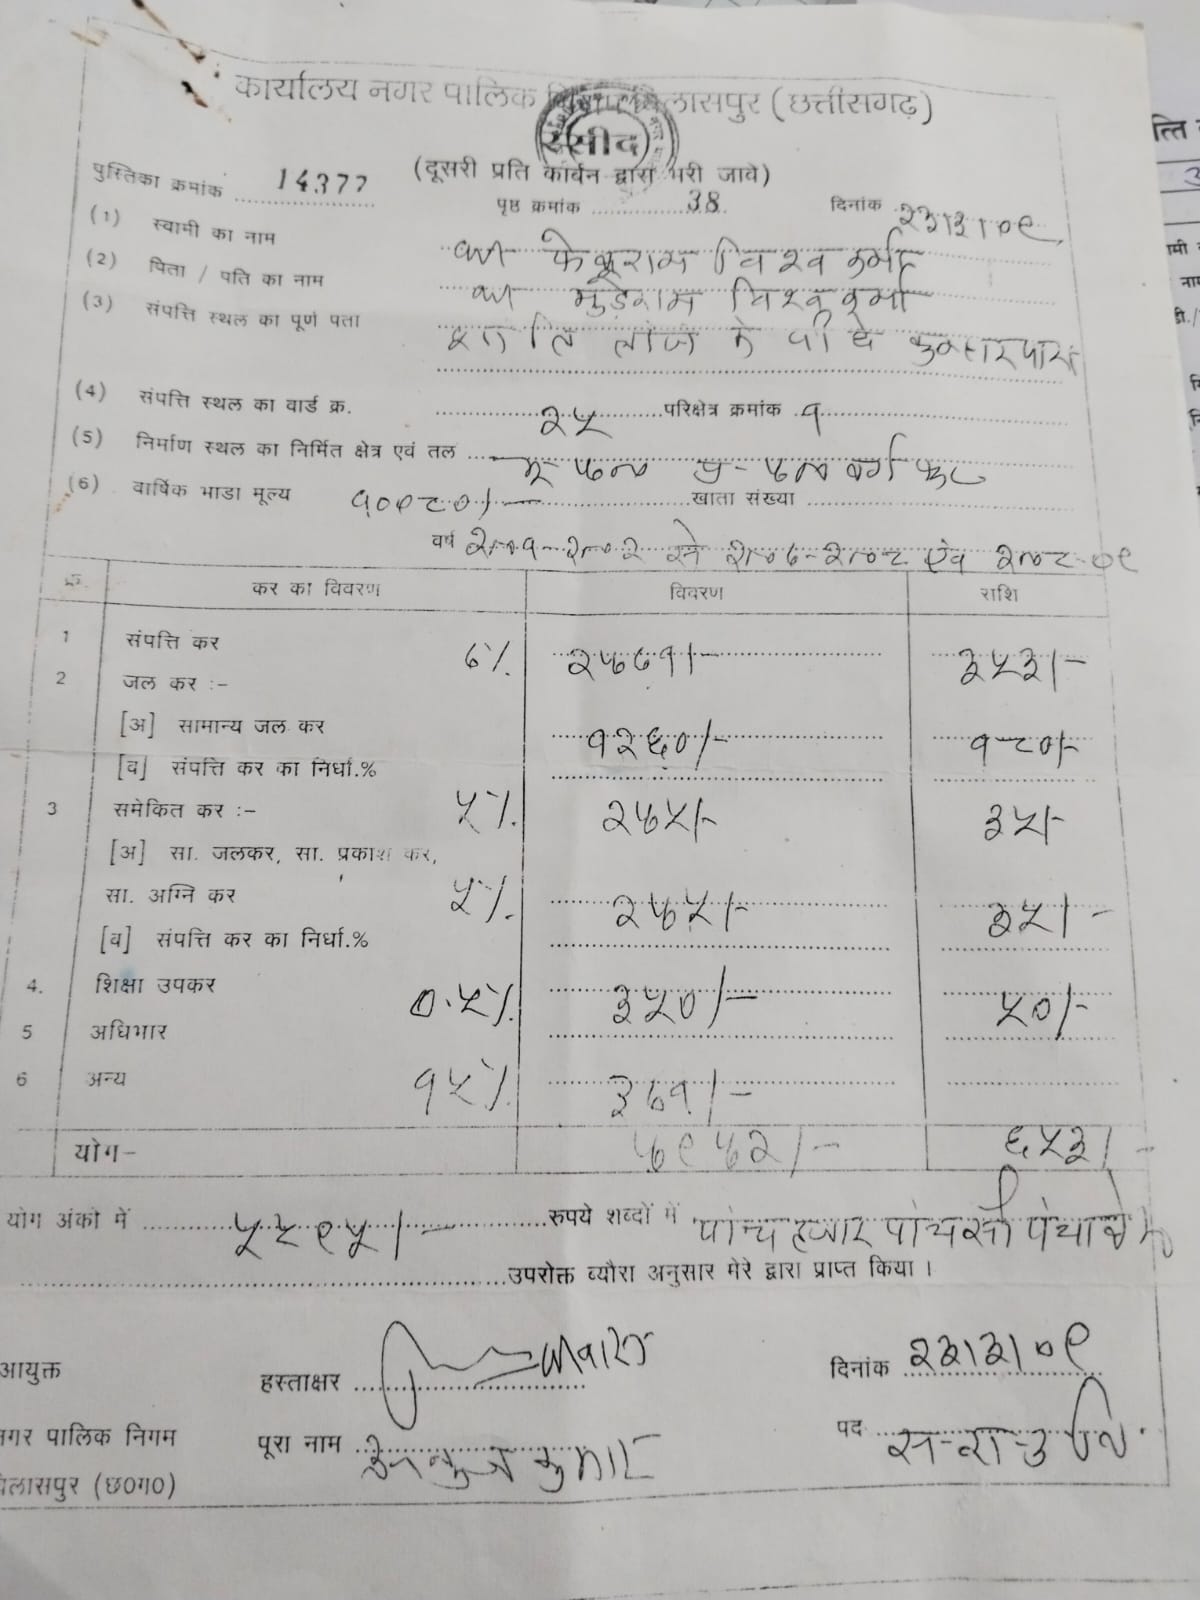 कार्यालय नगर पालिक निगम बिलासपुर (छत्तीसगढ़)
रसीद
(दूसरी प्रति कार्बन द्वारा भरी जावे)
पुस्तिका क्रमांक 14377 पृष्ठ क्रमांक 38 दिनांक २३।३।०९
(1) स्वामी का नाम श्री फेकूराम विश्वकर्मा
(2) पिता / पति का नाम श्री विश्वकर्मा
(3) संपत्ति स्थल का पूर्ण पता लॉज के पीछे कुम्हारपारा
(4) संपत्ति स्थल का वार्ड क्र. २५ परिक्षेत्र क्रमांक १
(5) निर्माण स्थल का निर्मित क्षेत्र एवं तल भू-७०० प्र-७०० वर्ग फुट
(6) वार्षिक भाडा मूल्य १००८०/- खाता संख्या
वर्ष २००१-२००२ से २००७-२००८ एंव २००८-०९
क्र. कर का विवरण विवरण राशि
1 संपत्ति कर ६% २४७१/- ३५३/-
2 जल कर :-
[अ] सामान्य जल कर १२६०/- १८०/-
[व] संपत्ति कर का निर्धा.%
3 समेकित कर :- ५% २४५/- ३५/-
[अ] सा. जलकर, सा. प्रकाश कर,
सा. अग्नि कर ५% २४५/- ३५/-
[व] संपत्ति कर का निर्धा.%
4. शिक्षा उपकर ०.५% ३५०/- ५०/-
5 अधिभार
6 अन्य १५% ३७१/-
योग- ४९४२/- ६५३/-
योग अंको में ५५९५/- रुपये शब्दों में पांच हजार पांच सौ पंचानबे
उपरोक्त ब्यौरा अनुसार मेरे द्वारा प्राप्त किया ।
आयुक्त हस्ताक्षर दिनांक २३।३।०९
नगर पालिक निगम पूरा नाम कुमार पद स-रा-उ नि.
बिलासपुर (छ0ग0)